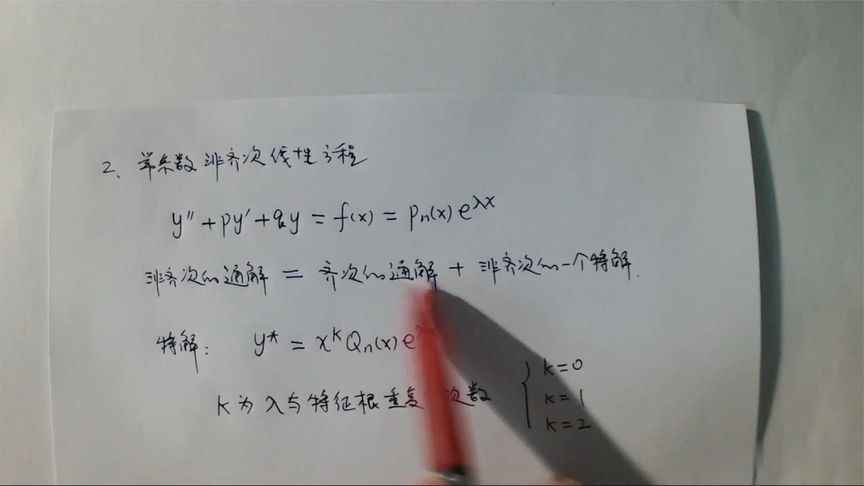 2、常系数非齐次线性方程
y″+py′+qy=f(x)=Pn(x)e^λx
非齐次的通解 = 齐次的通解 + 非齐次的一个特解.
特解: y*=x^k Qn(x)e
k为λ与特征根重复 次数 { k=0
k=1
k=2